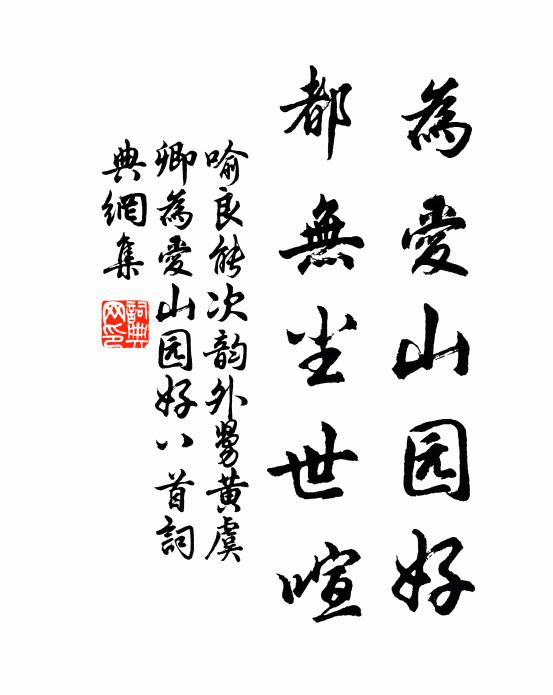 為愛山园好
都無尘世喧
喻良能次韵外舅黄虞
卿為愛山园好八首詞
典網集
詞典
网印